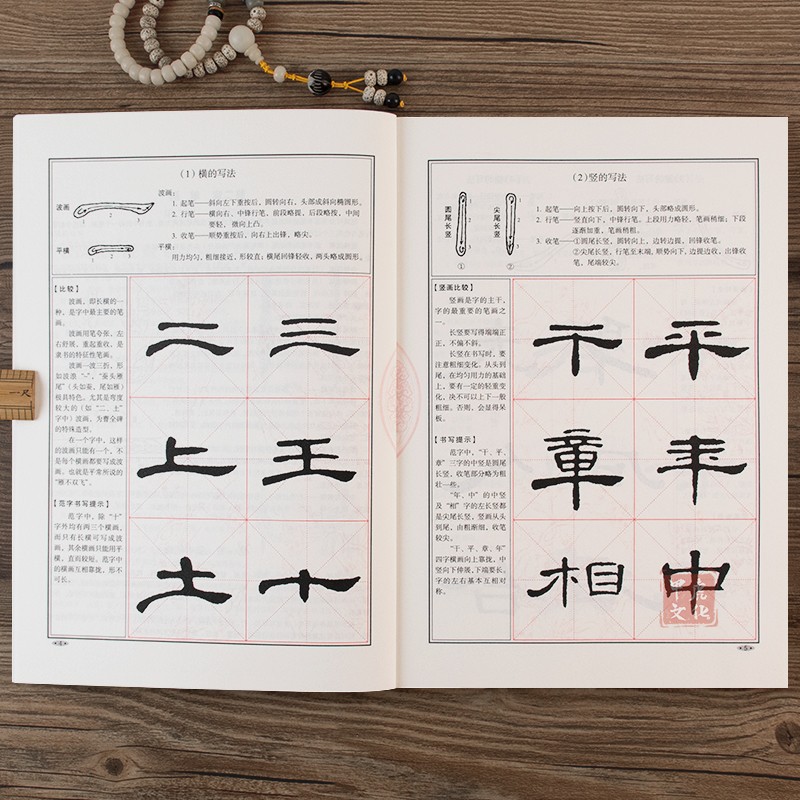 (1)横的写法
波画
波画：
1. 起笔—斜向左下重按后，圆转向右，头部成斜向椭圆形。
2. 行笔—横向右、中锋行笔，前段略提，后段略按，中间
要轻，微向上凸。
3. 收笔—顺势重按后，向右上出锋，略尖。
平横
平横：
用力均匀，粗细接近，形较直；横尾回锋轻收，两头略成圆形。
1
2
3
1
2
3
【比较】
波画，即长横的一
种，是字中最主要的笔
画。
波画用笔夸张，左
右舒展，重起重收，是
隶书的特征性笔画。
波画一波三折，形
如波浪“~”，“蚕头雁
尾”（头如蚕，尾如雁）
极具特色。尤其是弯度
较大的（如“二、土”
字中）波画，为曹全碑
的特殊造型。
在一个字中，这样
的波画只能有一个，不
是每个横画都要写成波
画。也就是平常所说的
“雁不双飞”。
【范字书写提示】
范字中，除“十”
字外均有两三个横画，
而只有长横可写成波
画，其余横画只能用平
横，直而较短。范字中
的横画互相靠拢，形不
可长。
二 三
上 王
土 十
4
一尺
(2)竖的写法
圆尾长竖
①
尖尾长竖
②
1
2
3
1
2
3
1. 起笔—向上按下后，圆转向下，头部略成圆形。
2. 行笔—竖直向下，中锋行笔。上段用力略轻，笔画稍细；下段
逐渐加重，笔画稍粗。
3. 收笔—①圆尾长竖，圆转向上，边转边提，回锋收笔。
②尖尾长竖，行笔至末端，顺势向下，边提边收，出锋收
笔，尾端较尖。
【竖画比较】
竖画是字的主干，
字的最重要的笔画之
一。
长竖要写得端端正
正，不偏不斜。
长竖在书写时，要
注意粗细变化。从头到
尾，在均匀用力的基础
上，要有一定的轻重变
化，决不可以上下一般
粗细。否则，会显得呆
板。
【书写提示】
范字中，“干、平、
章”三字的中竖是圆尾
长竖，收笔部分略为粗
壮一些。
“年、中”的中竖
及“相”字的左长竖都
是尖尾长竖，竖画从头
到尾，由粗渐细，收笔
较尖。
“干、平、章、年”
四字横画向上靠拢，中
竖向下伸展，下端要长。
字的左右基本互相对
称。
干 平
章 年
相 中
5